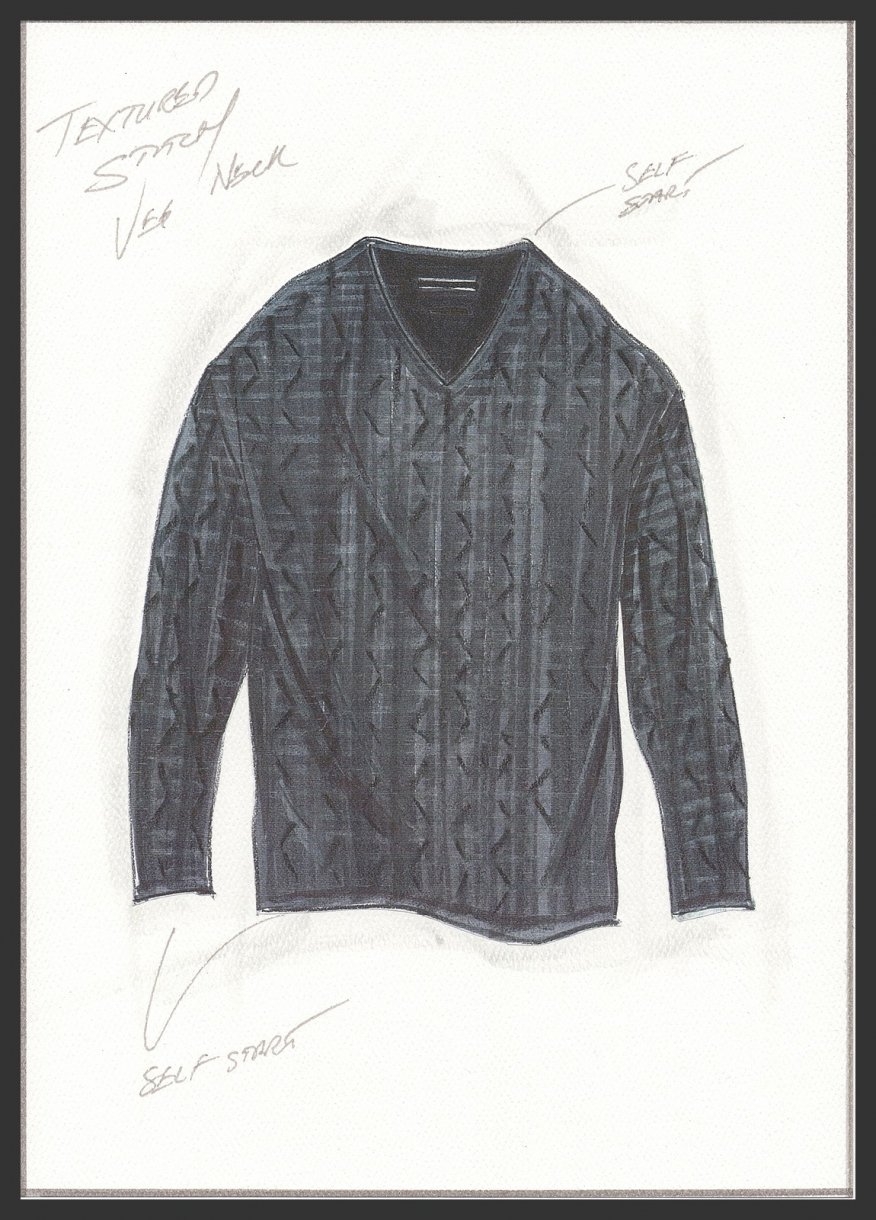 TEXTURED
STITCH
VEE NECK
SELF
START
SELF START